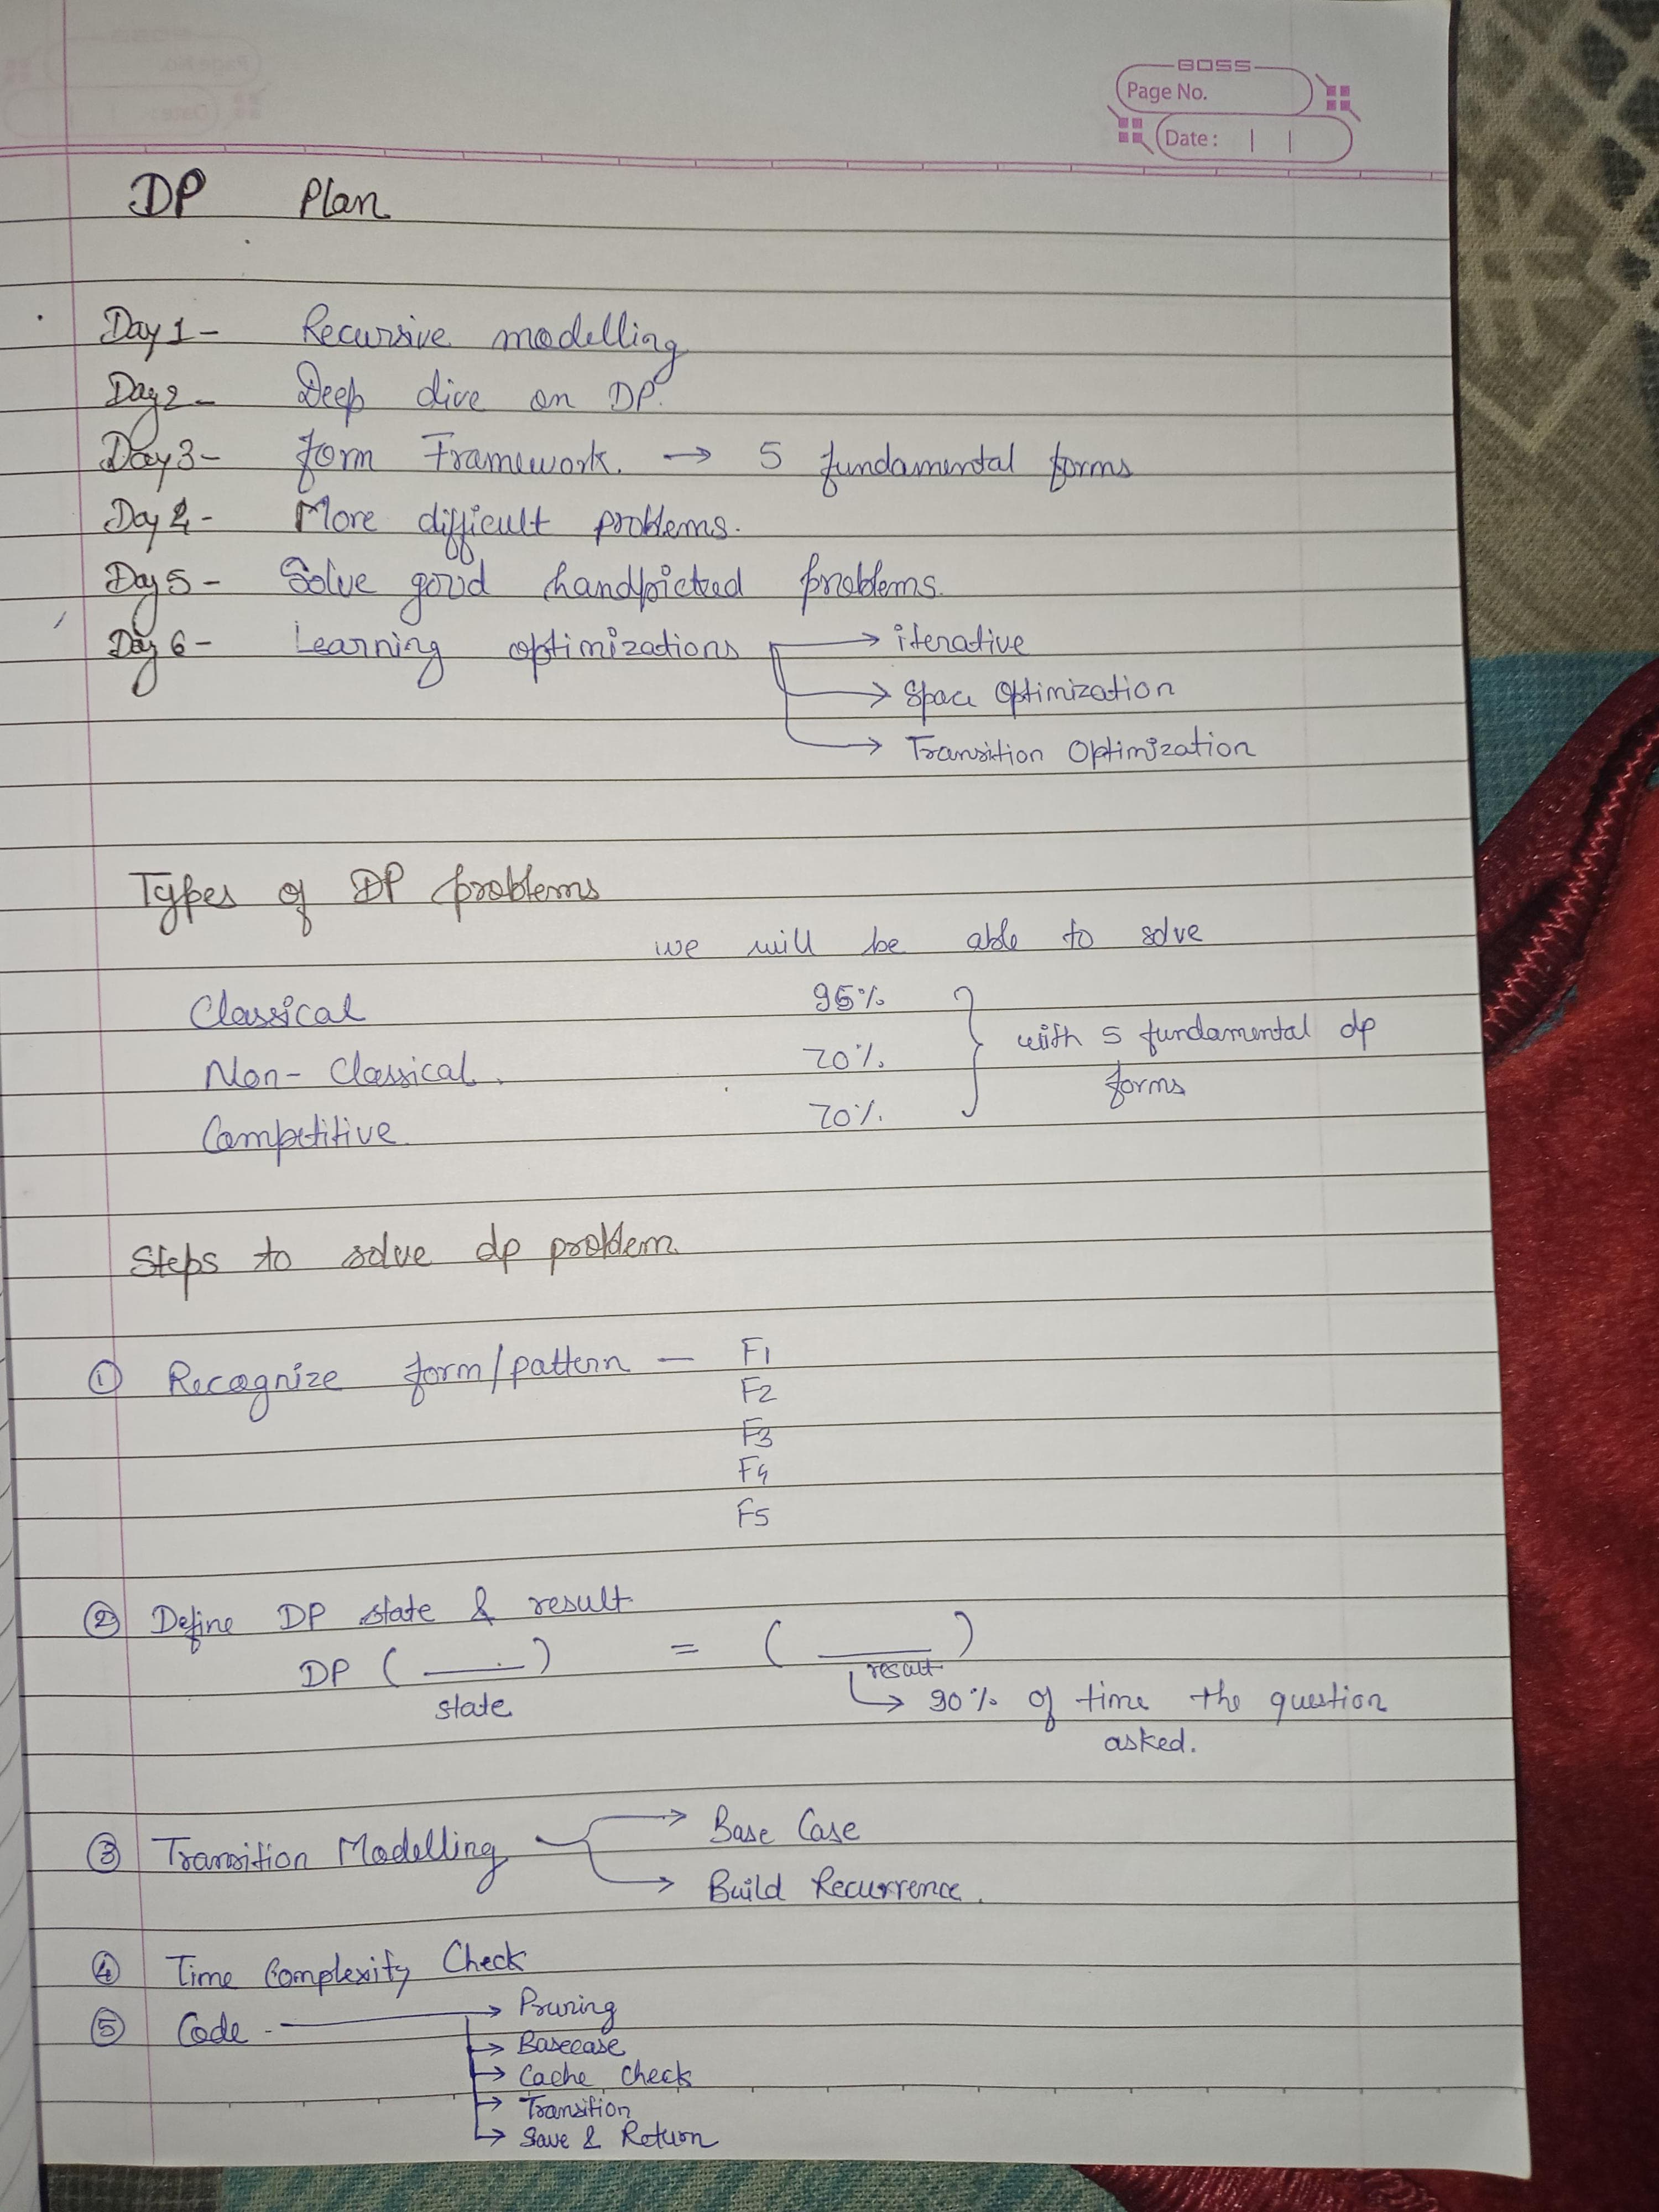 BOSS
Page No.
Date :
DP Plan
Day 1 - Recursive modelling
Day 2 - Deep dive on DP.
Day 3 - form Framework. → 5 fundamental forms
Day 4 - More difficult problems.
Day 5 - Solve good handpicked problems.
Day 6 - Learning optimizations → iterative
→ Space Optimization
→ Transition Optimization
Types of DP problems
we will be able to solve
Classical 95%
Non-Classical. 70%. with 5 fundamental dp
forms
Competitive. 70%.
Steps to solve dp problem.
① Recognize form/pattern — F1
F2
F3
F4
F5
② Define DP state & result
DP ( ____ ) = ( ____ )
state result
→ 90% of time the question
asked.
③ Transition Modelling → Base Case
→ Build Recurrence.
④ Time Complexity Check
⑤ Code - → Pruning
→ Basecase
→ Cache check
→ Transition
→ Save & Return